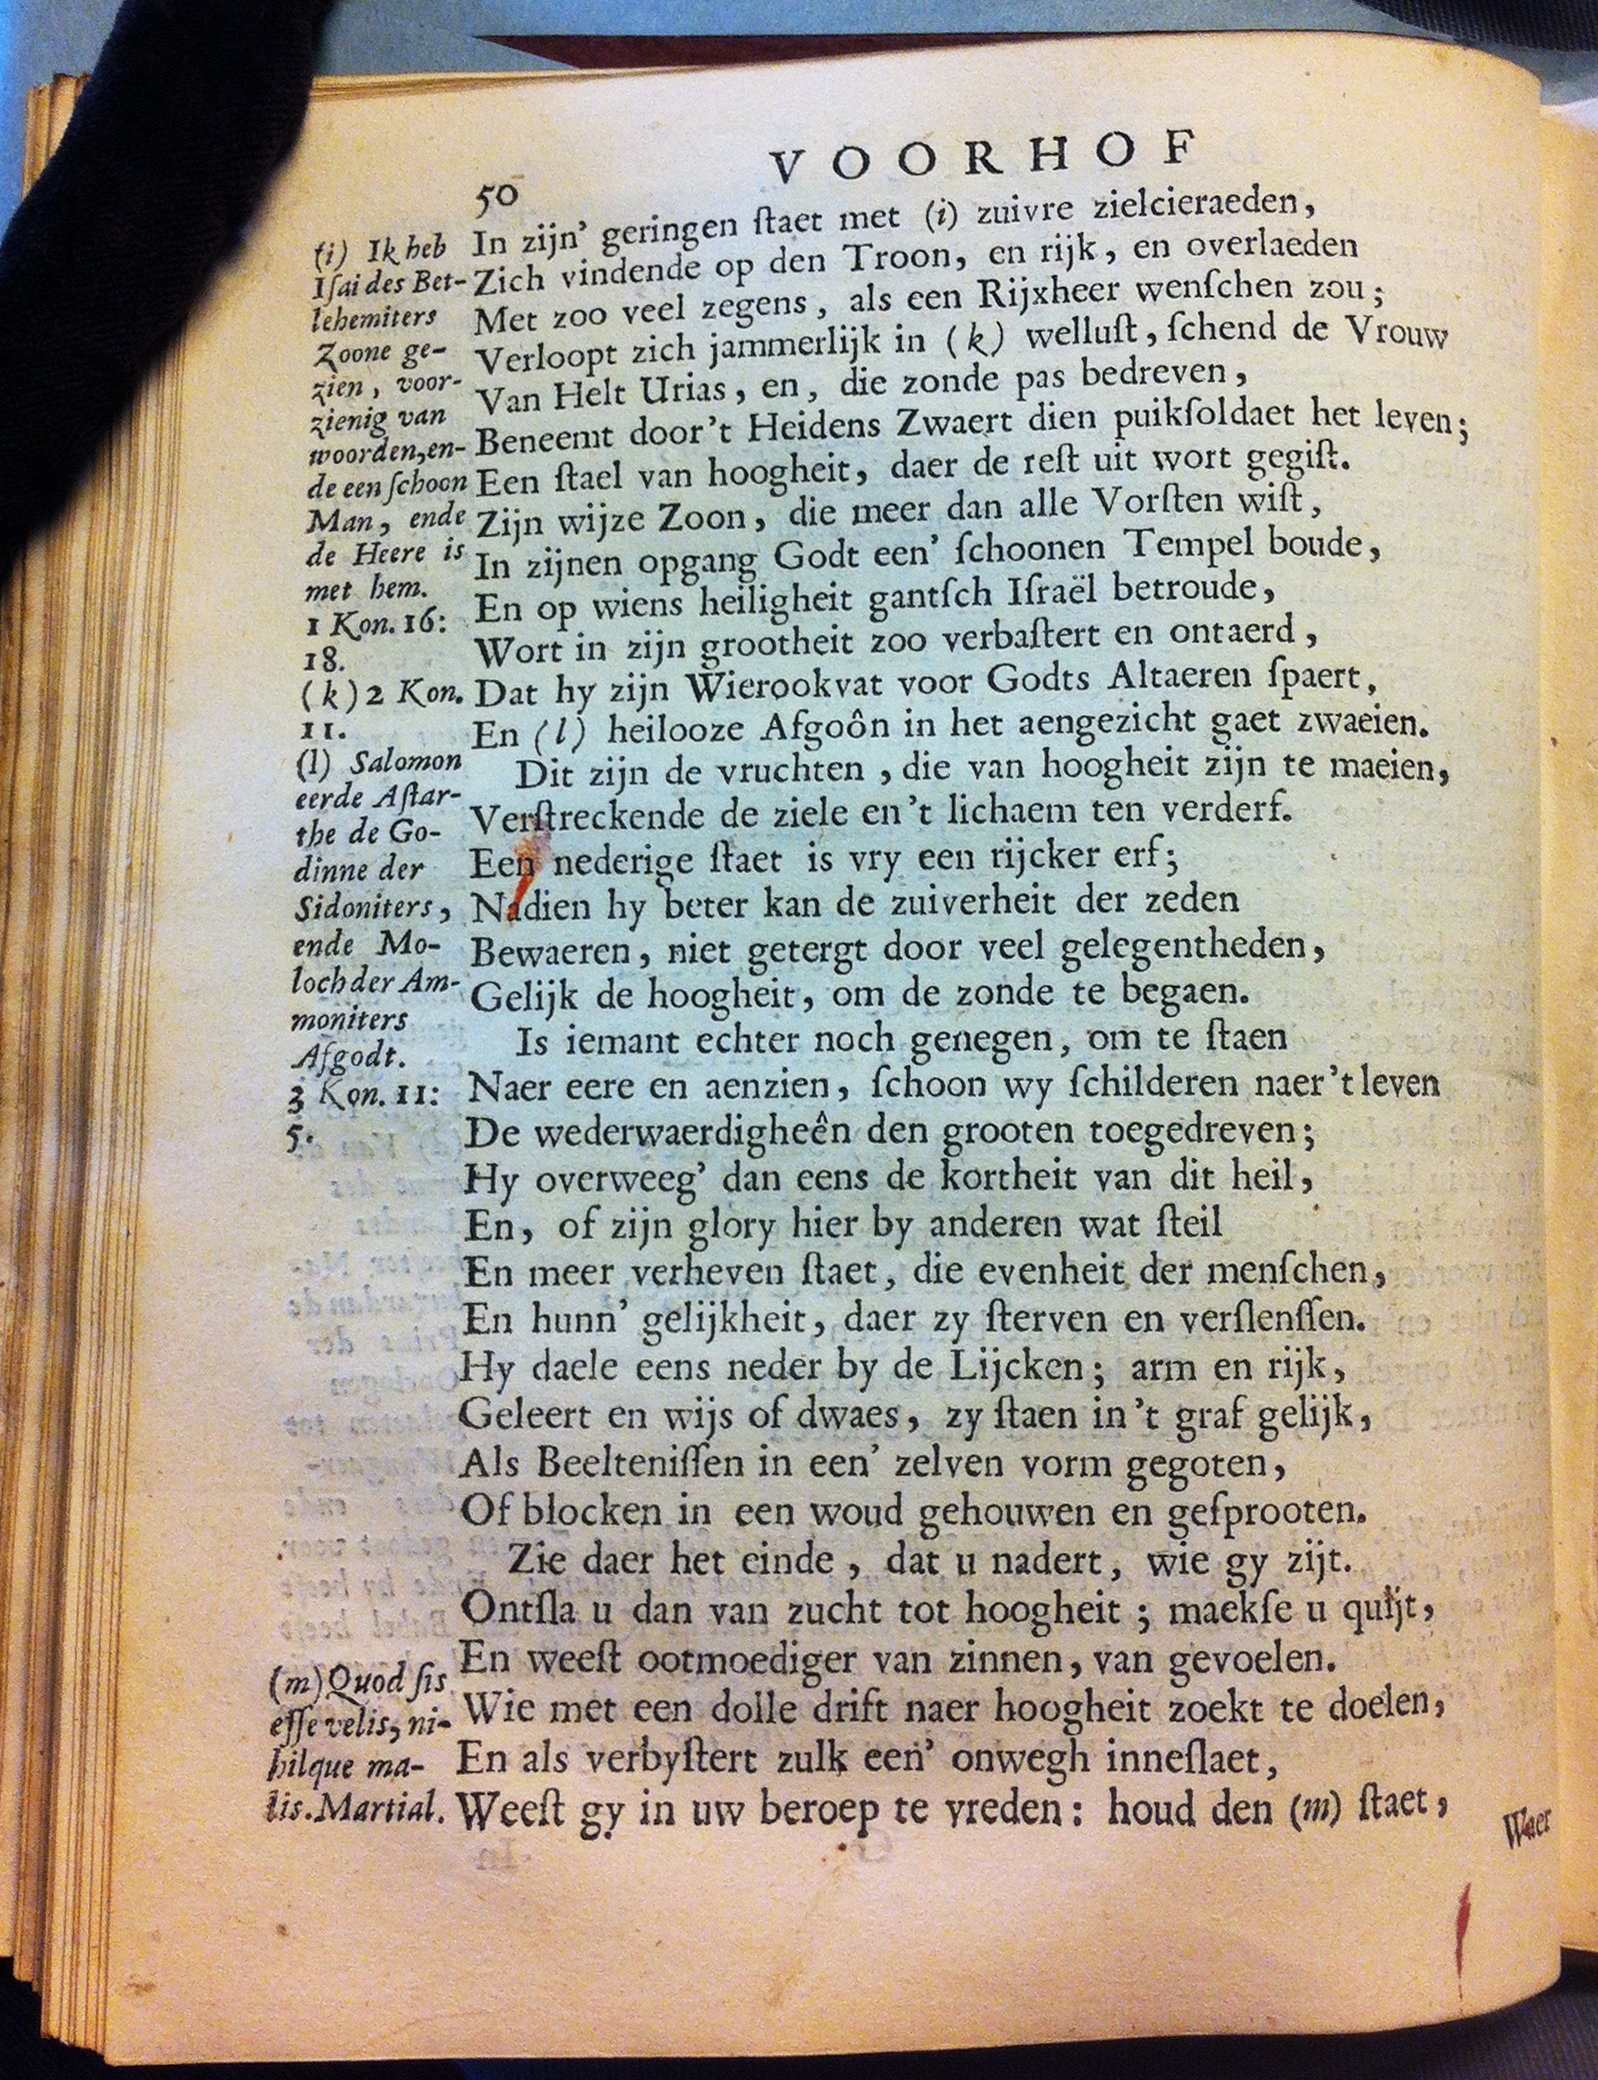 50
VOORHOF
In zijn' geringen ſtaet met (i) zuivre zielcieraeden,
Zich vindende op den Troon, en rijk, en overlaeden
Met zoo veel zegens, als een Rijxheer wenſchen zou;
Verloopt zich jammerlijk in (k) welluſt, ſchend de Vrouw
Van Helt Urias, en, die zonde pas bedreven,
Beneemt door't Heidens Zwaert dien puikſoldaet het leven;
Een ſtael van hoogheit, daer de reſt uit wort gegiſt.
Zijn wijze Zoon, die meer dan alle Vorſten wiſt,
In zijnen opgang Godt een' ſchoonen Tempel boude,
En op wiens heiligheit gantſch Iſraël betroude,
Wort in zijn grootheit zoo verbaſtert en ontaerd,
Dat hy zijn Wierookvat voor Godts Altaeren ſpaert,
En (l) heilooze Afgoôn in het aengezicht gaet zwaeien.
Dit zijn de vruchten, die van hoogheit zijn te maeien,
Verſtreckende de ziele en't lichaem ten verderf.
Een nederige ſtaet is vry een rijcker erf;
Nadien hy beter kan de zuiverheit der zeden
Bewaeren, niet getergt door veel gelegentheden,
Gelijk de hoogheit, om de zonde te begaen.
Is iemant echter noch genegen, om te ſtaen
Naer eere en aenzien, ſchoon wy ſchilderen naer't leven
De wederwaerdigheên den grooten toegedreven;
Hy overweeg' dan eens de kortheit van dit heil,
En, of zijn glory hier by anderen wat ſteil
En meer verheven ſtaet, die evenheit der menſchen,
En hunn' gelijkheit, daer zy ſterven en verſlenſſen.
Hy daele eens neder by de Lijcken; arm en rijk,
Geleert en wijs of dwaes, zy ſtaen in't graf gelijk,
Als Beelteniſſen in een' zelven vorm gegoten,
Of blocken in een woud gehouwen en geſprooten.
Zie daer het einde, dat u nadert, wie gy zijt.
Ontſla u dan van zucht tot hoogheit; maekſe u quijt,
En weeſt ootmoediger van zinnen, van gevoelen.
Wie met een dolle drift naer hoogheit zoekt te doelen,
En als verbyſtert zulk een' onwegh inneſlaet,
Weeſt gy in uw beroep te vreden: houd den (m) ſtaet,
Waer
(i) Ik heb
Iſai des Bet-
lehemiters
Zoone ge-
zien, voor-
zienig van
woorden, en-
de een ſchoon
Man, ende
de Heere is
met hem.
1 Kon. 16:
18.
(k) 2 Kon.
11.
(l) Salomon
eerde Aſtar-
the de Go-
dinne der
Sidoniters,
ende Mo-
loch der Am-
moniters
Afgodt.
3 Kon. 11:
5.
(m) Quod ſis
eſſe velis, ni-
hilque ma-
lis. Martial.